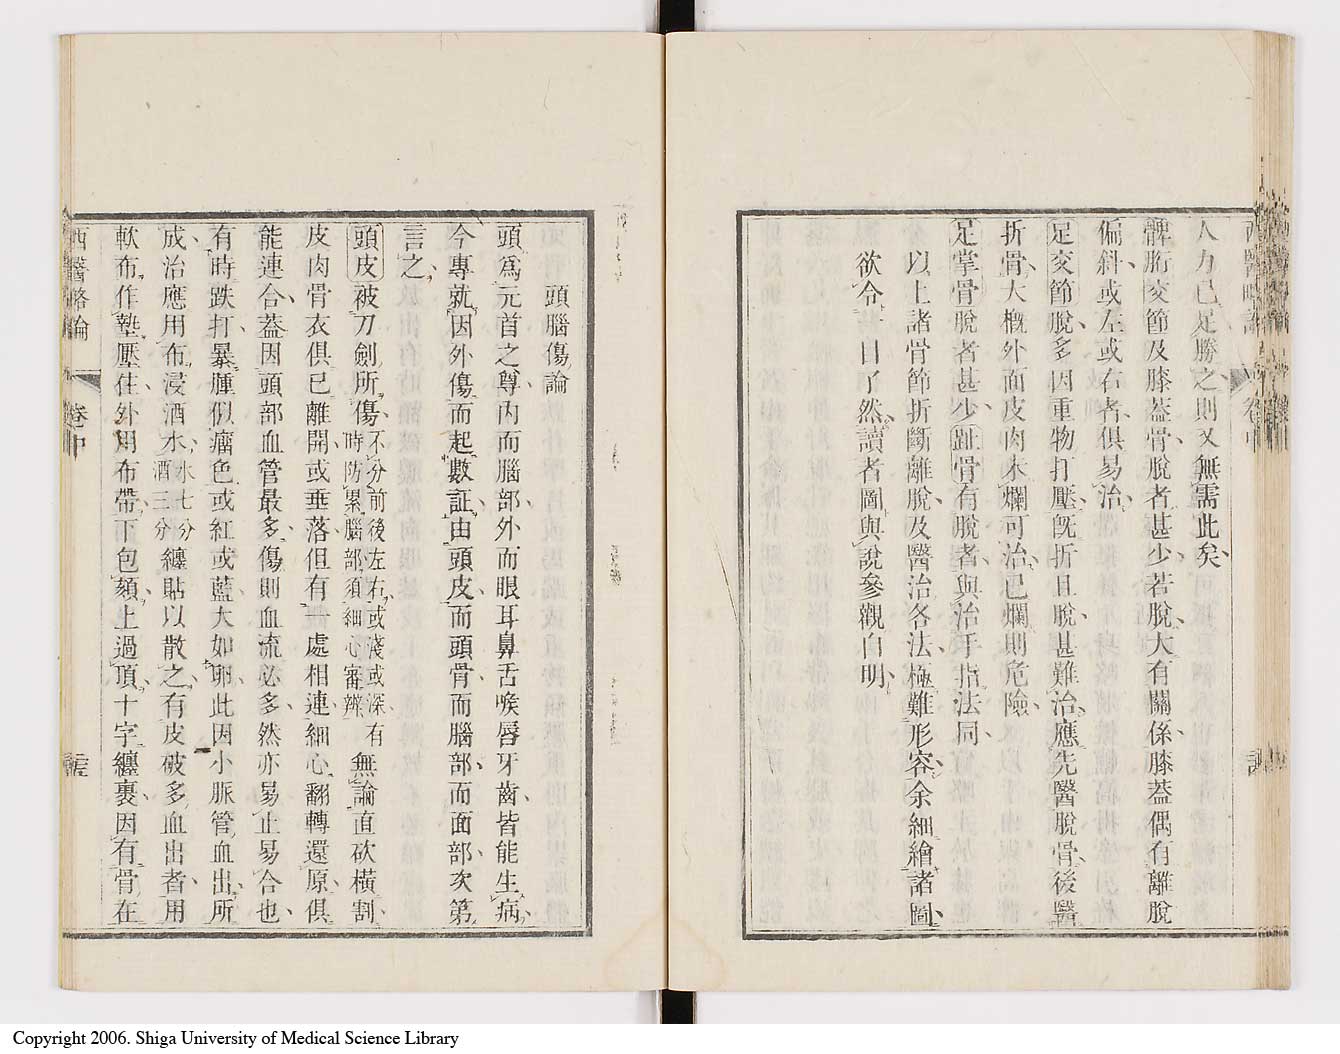 人力已足勝之則又無需此矣
髀䯒交節及膝蓋骨脫者甚少若脫大有關係膝蓋偶有離脫
偏斜或左或右者俱易治
足交節脫多因重物打壓旣折且脫甚難治應先醫脫骨後醫
折骨大槪外面皮肉未爛可治已爛則危險
足掌骨脫者甚少趾骨有脫者與治手指法同
以上諸骨節折斷離脫及醫治各法極難形容余細繪諸圖
欲令一目了然讀者圖與說參觀自明
頭腦傷論
頭爲元首之尊內而腦部外而眼耳鼻舌喉唇牙齒皆能生病
今專就因外傷而起數証由頭皮而頭骨而腦部而面部次第
言之
頭皮被刀劍所傷不分前後左右或淺或深有時防累腦部須細心審辨無論直砍橫割
皮肉骨衣俱已離開或垂落但有一處相連細心翻轉還原俱
能連合蓋因頭部血管最多傷則血流必多然亦易止易合也
有時跌打暴腫似瘤色或紅或藍大如卵此因小脈管血出所
成治應用布浸酒水水七分酒三分纏貼以散之有皮破多血出者用
軟布作墊壓住外用布帶下包頦上過頂十字纏裹因有骨在
西醫略論
卷中